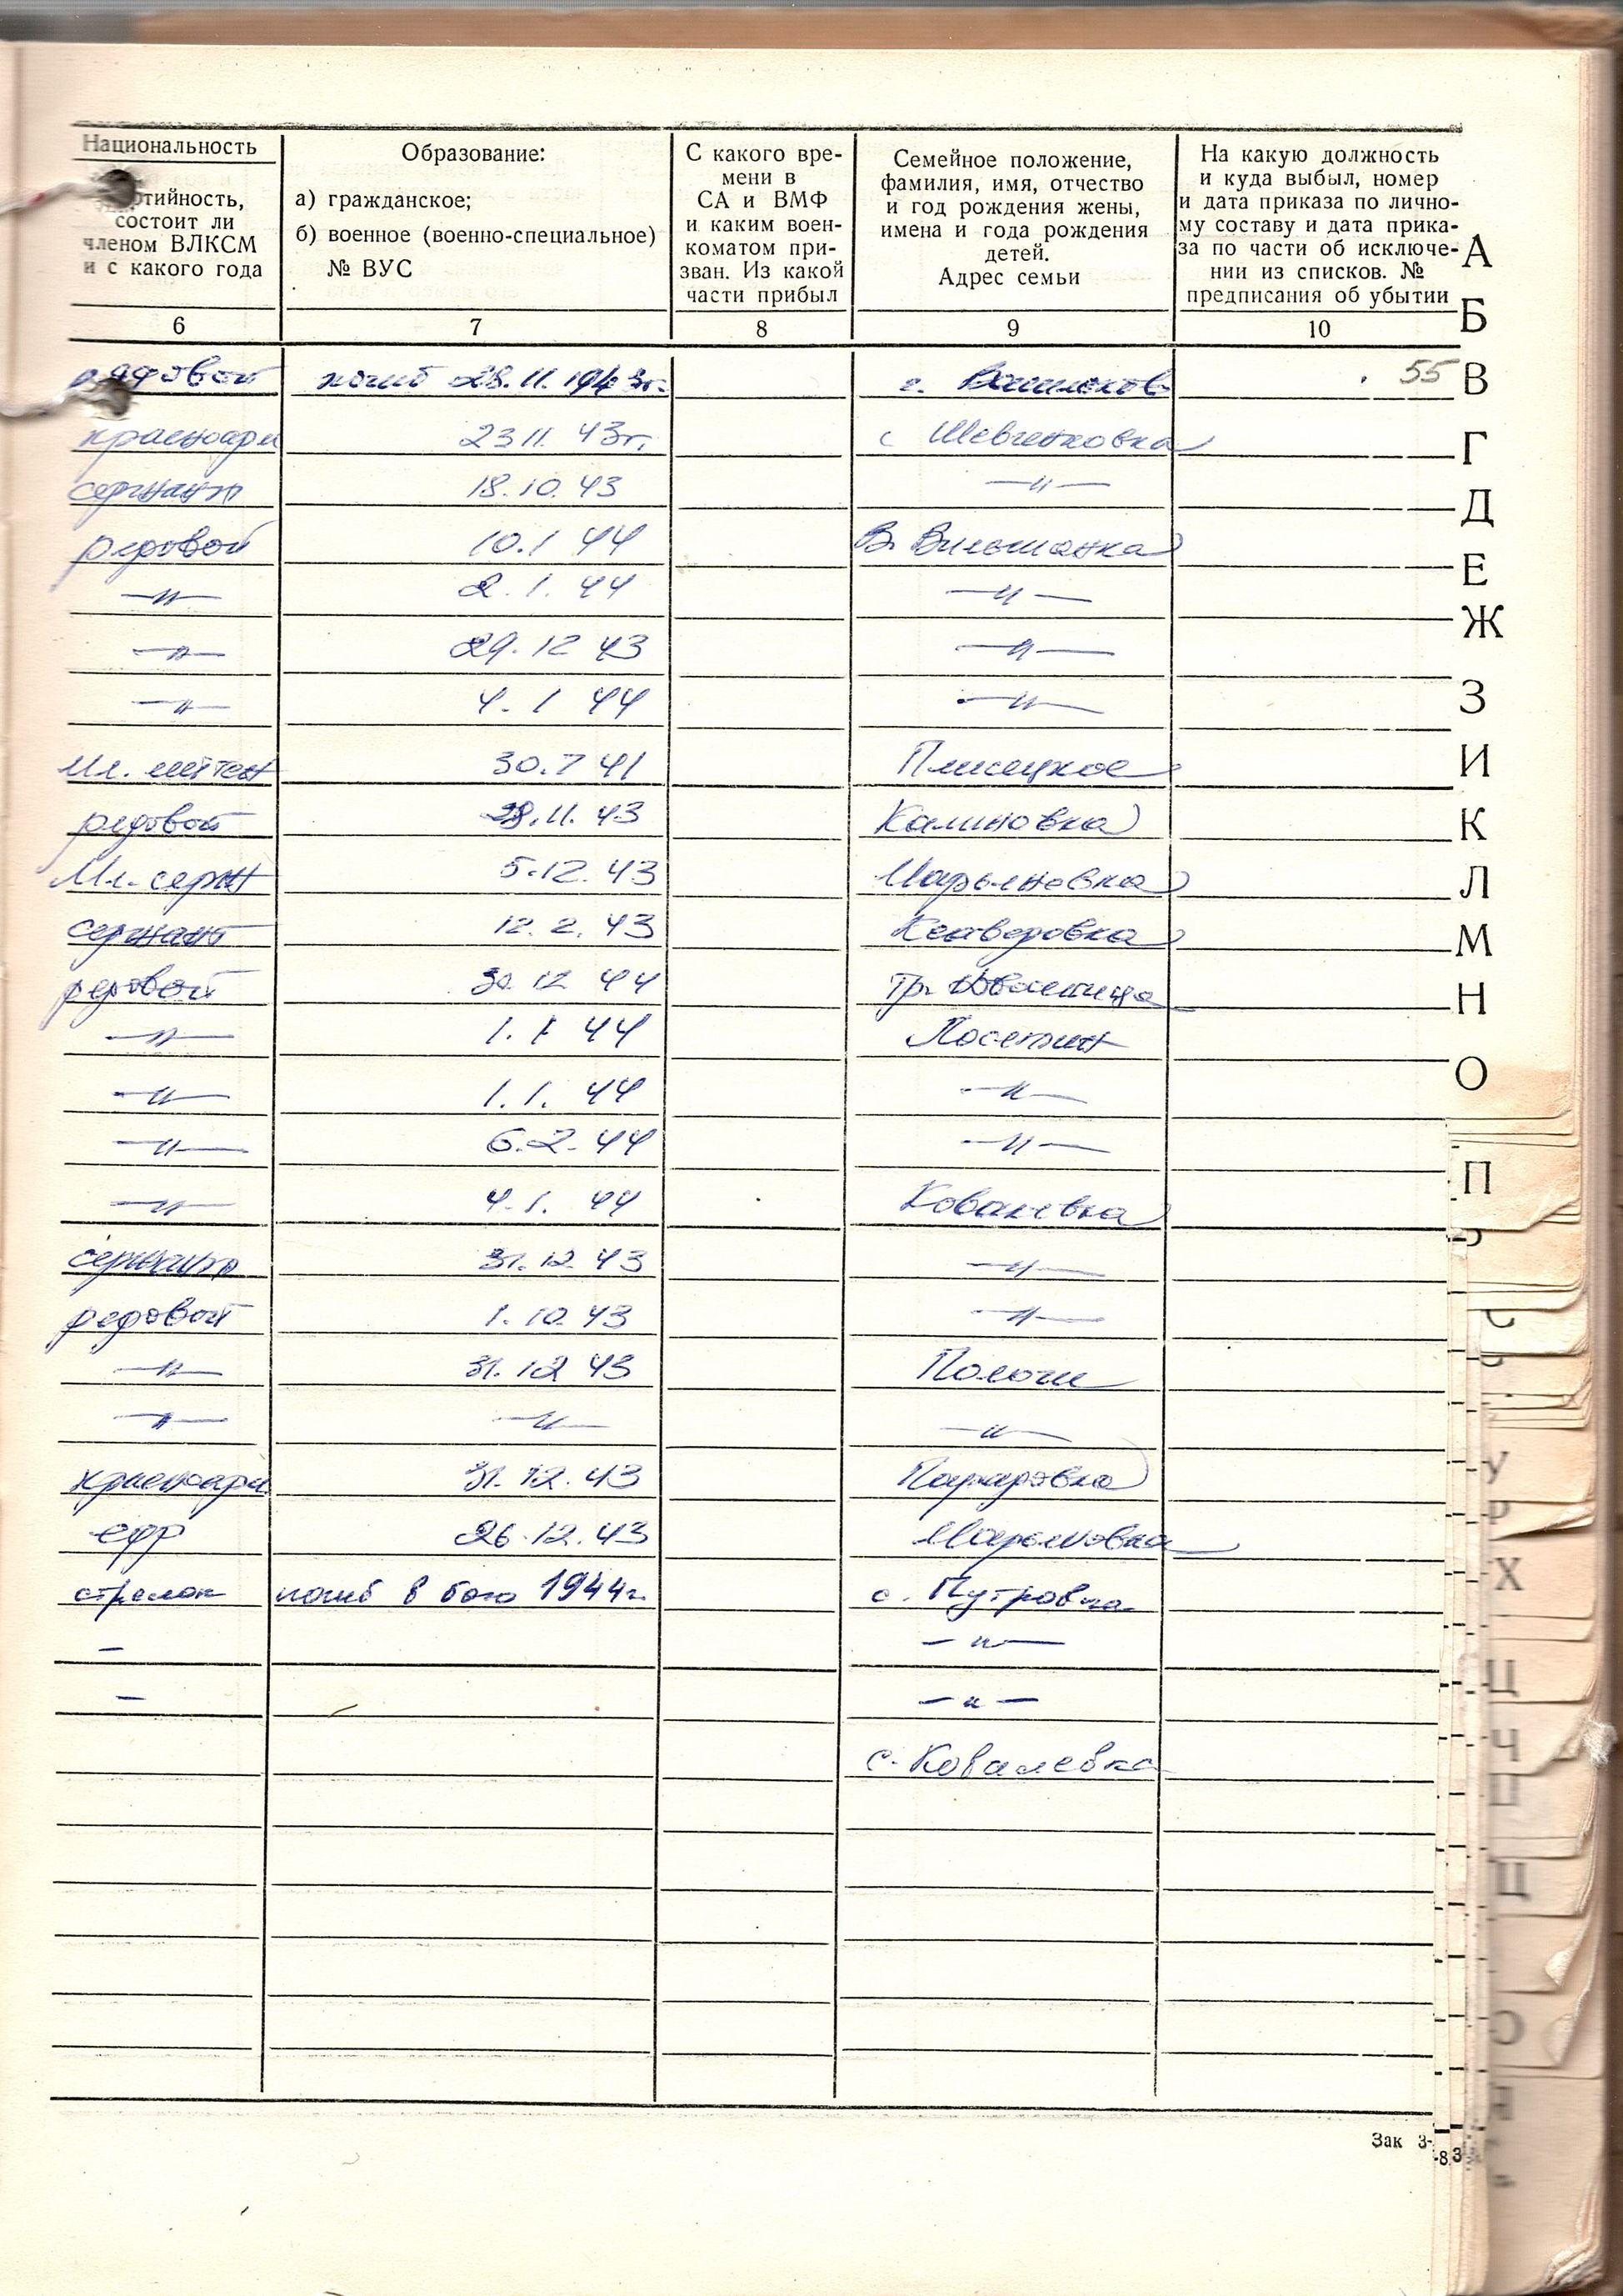 Национальность
партийность,
состоит ли
членом ВЛКСМ
и с какого года
Образование:
а) гражданское;
б) военное (военно-специальное)
№ ВУС
С какого вре-
мени в
СА и ВМФ
и каким воен-
коматом при-
зван. Из какой
части прибыл
Семейное положение,
фамилия, имя, отчество
и год рождения жены,
имена и года рождения
детей.
Адрес семьи
На какую должность
и куда выбыл, номер
и дата приказа по лично-
му составу и дата прика-
за по части об исключе-
нии из списков. №
предписания об убытии
6 7 8 9 10
рядовой погиб 28.11.1943г. г. 55
красноарм 23 11. 43г. с Шевченковка
сержант 18.10.43 —"—
рядовой 10.1 44 В. Вильшанка
—"— 2.1.44 —"—
—"— 29.12 43 —"—
—"— 4.1 44 —"—
Мл. лейтен 30.7 41 Плисецкое
рядовой 28.11.43 Калиновка
Мл. серж 5.12.43 Марьяновка
сержант 12.2.43 Ксаверовка
рядовой 30 12 44
—"— 1.1 44
—"— 1.1.44 —"—
—"— 6.2.44 —"—
—"— 4.1.44 Ковалевка
сержант 31.12.43 —"—
рядовой 1.10.43 —"—
—"— 31.12 43 Пологи
—"— —"— —"—
красноарм 31.12.43
ефр 26.12.43 Марьяновка
стрелок погиб в бою 1944г. с. Путровка
– —"—
– —"—
с. Ковалевка
Зак 3-
А
Б
В
Г
Д
Е
Ж
З
И
К
Л
М
Н
О
П
С
У
Х
Ц
Ч